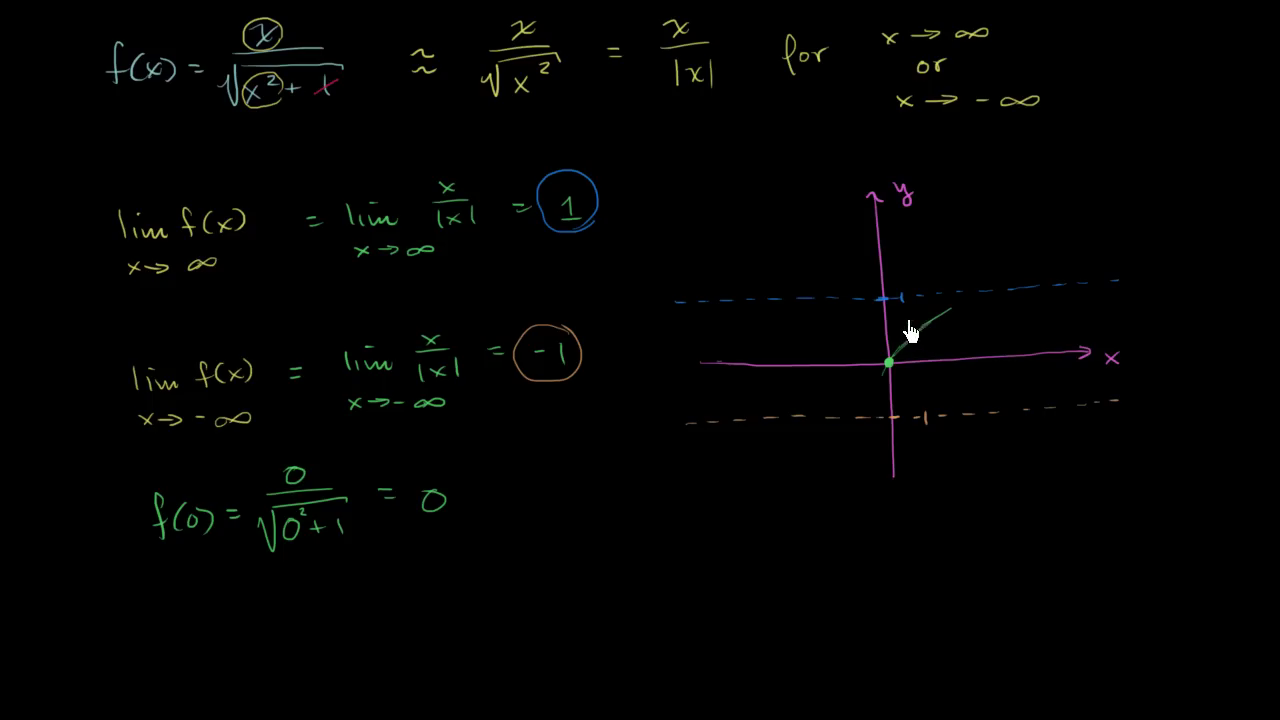 f(x) = x / √(x² + 1) ≈ x / √(x²) = x / |x| for x → ∞ or x → - ∞
lim f(x) x → ∞ = lim x → ∞ x / |x| = 1
lim f(x) x → - ∞ = lim x → - ∞ x / |x| = -1
f(0) = 0 / √(0² + 1) = 0
y
1
x
-1